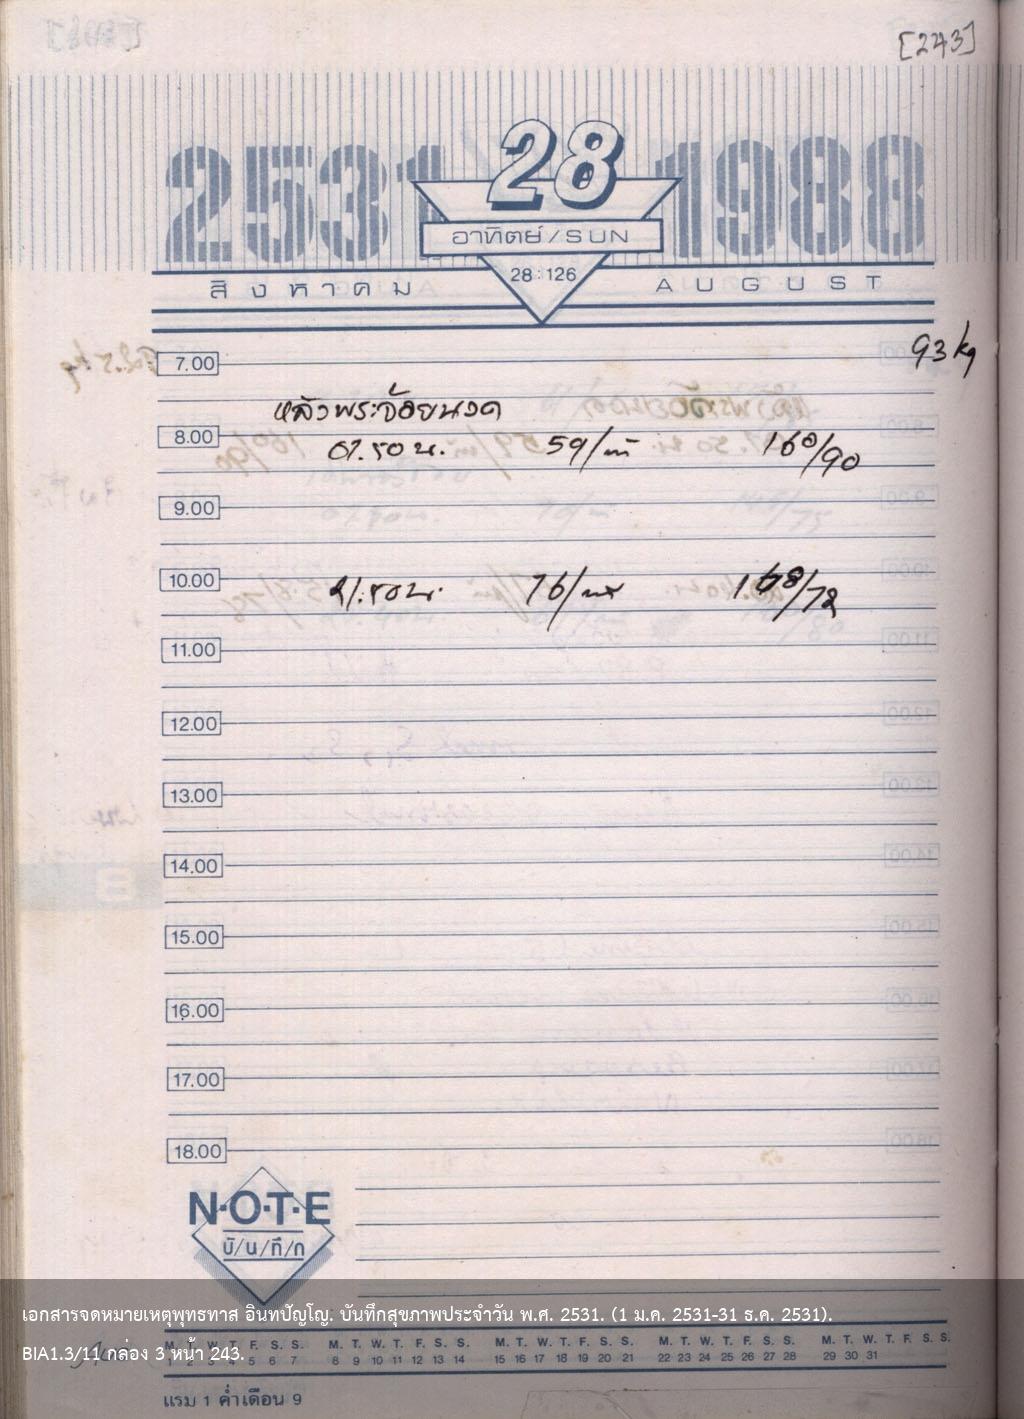 [243]
2531 28 1988
อาทิตย์/SUN
28:126
สิงหาคม AUGUST
7.00 93 kg
หลังพระจ้อยนวด
8.00
59/ 160/90
9.00
10.00
76/
11.00
12.00
13.00
14.00
15.00
16.00
17.00
18.00
N·O·T·E
บั/น/ทึ/ก
เอกสารจดหมายเหตุพุทธทาส อินทปัญโญ. บันทึกสุขภาพประจำวัน พ.ศ. 2531. (1 ม.ค. 2531-31 ธ.ค. 2531).
M. T. W. T. F. S. S. M. T. W. T. F. S. S. M. T. W. T. F. S. S. M. T. W. T. F. S. S. M. T. W. T. F. S. S.
BIA1.3/11 กล่อง 3 หน้า 243.
1 2 3 4 5 6 7 8 9 10 11 12 13 14 15 16 17 18 19 20 21 22 23 24 25 26 27 28 29 30 31
แรม 1 ค่ำเดือน 9